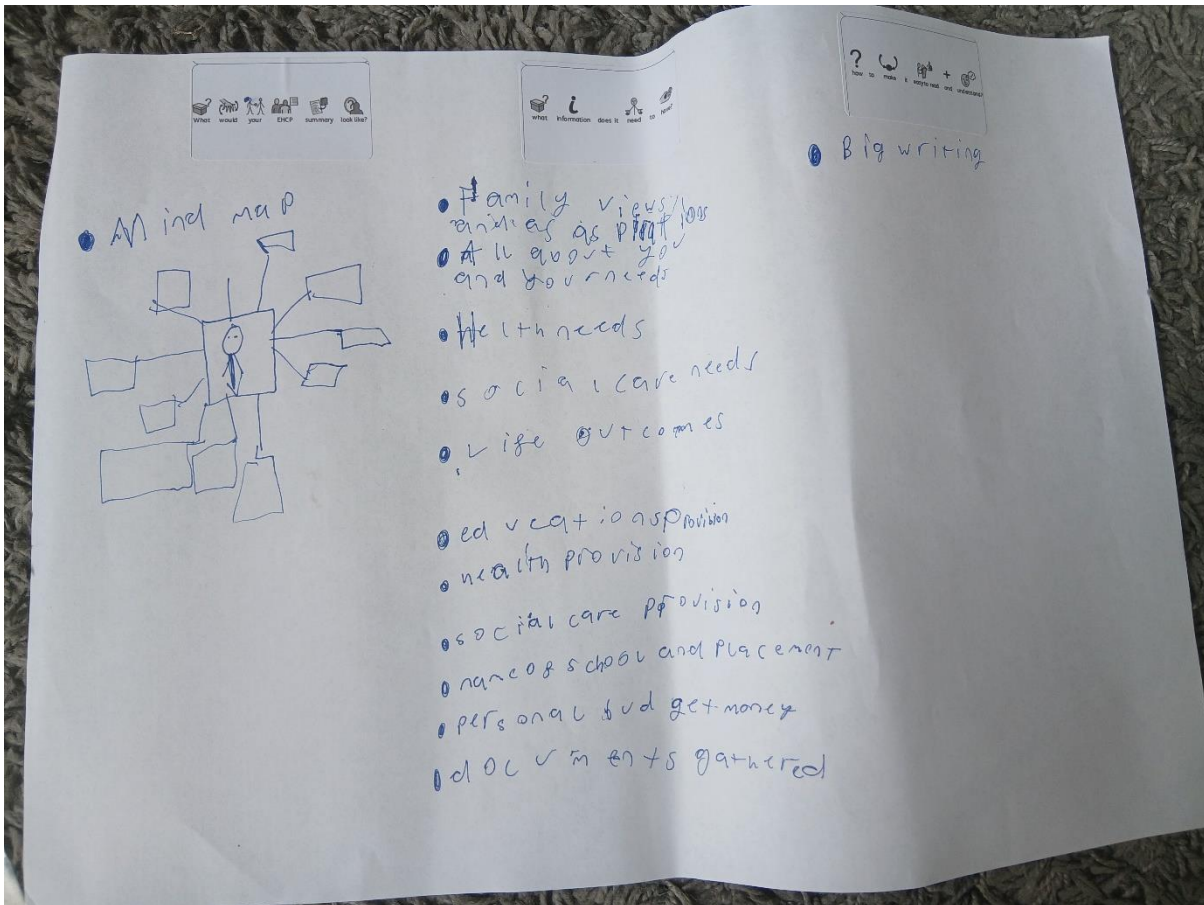 What would your EHCP summary look like?
Mind map
what information does it need to have?
Family views
and as as
All about you
and your needs
Helth needs
social care needs
Life outcomes
educations provision
health provision
social care provision
name of school and placement
personal budget money
documents gathered
? how to make it easy to read and understand?
Big writing